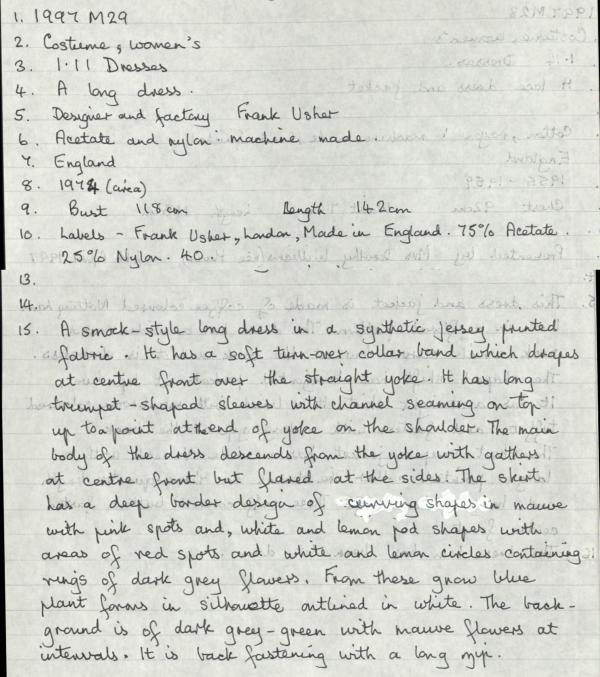 1. 1997 M29
2. Costume, women's
3. 1.11 Dresses
4. A long dress.
5. Designer and factory Frank Usher
6. Acetate and nylon: machine made.
7. England
8. 1974 (area)
9. Bust 118cm Length 142cm
10. Labels - Frank Usher, London, Made in England. 75% Acetate.
25% Nylon. 40.
13.
14.
15. A smock-style long dress in a synthetic jersey printed
fabric. It has a soft turn-over collar band which drapes
at centre front over the straight yoke. It has long
trumpet-shaped sleeves with channel seaming on top
up to a point at the end of yoke on the shoulder. The main
body of the dress descends from the yoke with gathers
at centre front but flared at the sides. The skirt
has a deep border design of curving shapes in mauve
with pink spots and, white and lemon pod shapes with
areas of red spots and white and lemon circles containing
rings of dark grey flowers. From these grow blue
plant forms in silhouette outlined in white. The back-
ground is of dark grey-green with mauve flowers at
intervals. It is back fastening with a long zip.